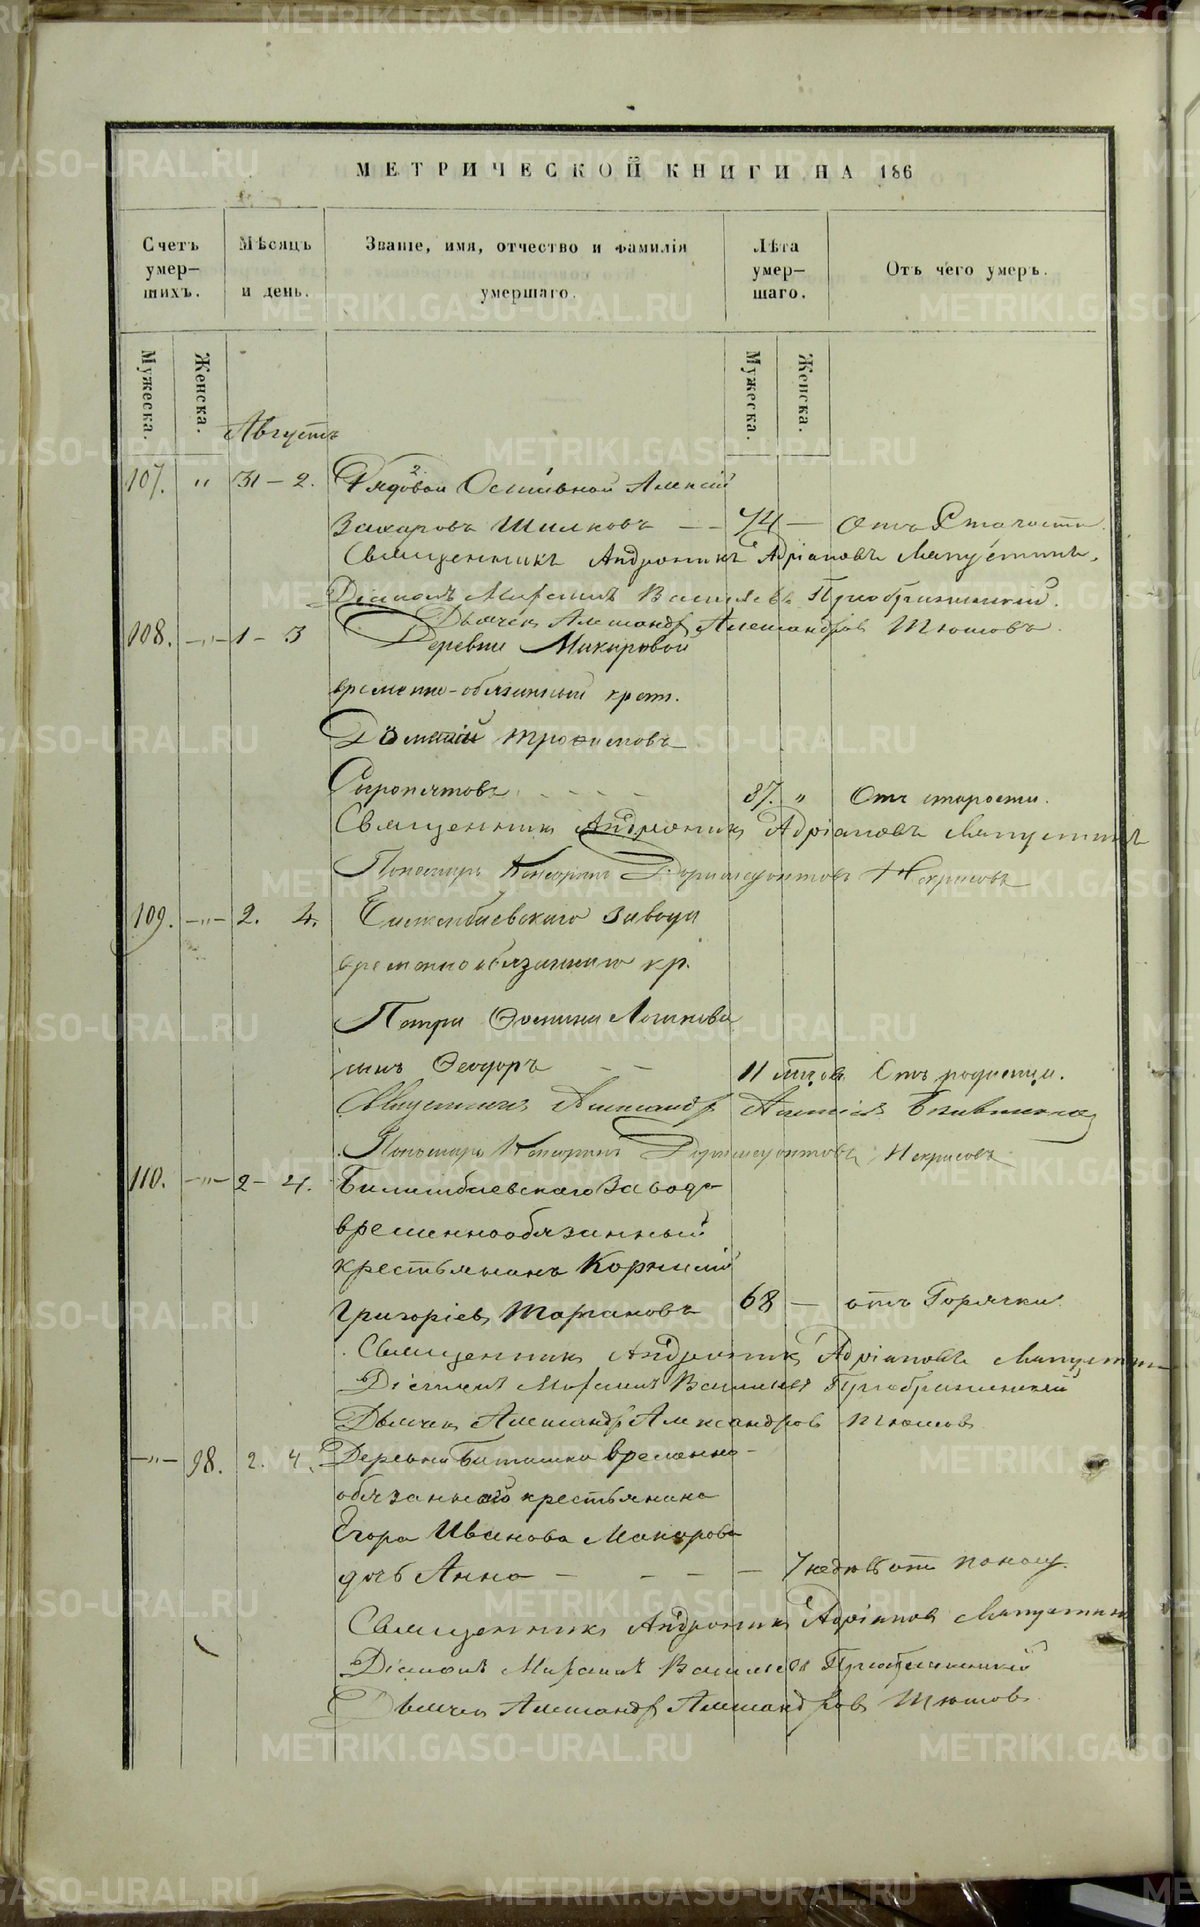 МЕТРИЧЕСКОЙ КНИГИ НА 186
Счетъ умер-шихъ.
Мѣсяцъ и день.
Званіе, имя, отчество и фамилія умершаго.
Лѣта умер-шаго.
Отъ чего умеръ.
Мужеска.
Женска.
Мужеска.
Женска.
Августъ
107. " 31 - 2. Рядовой Алексій
Захаровъ Шилковъ - - 74 - Отъ Старости
Священникъ Андроникъ Адріановъ Лапустинъ,
Діаконъ Василевъ Преображенскій.
Дьячекъ Александръ Александровъ Тюшовъ
108. -"- 1 - 3 Деревни Макаровой
временно-обязанный крест.
Трофимовъ
Сыропятовъ - - - - 87. " Отъ старости.
Священникъ Андроникъ Адріановъ Лапустинъ
Пономарь Доримедонтовъ Некрасовъ
109. -"- 2. 4. Билимбаевскаго Завода
временнообязаннаго кр.
Петра Ѳомина Логинова
сынъ Ѳеодоръ - - 11 Отъ родимца.
Священникъ Александръ Алексіевъ
Пономарь Доримедонтовъ Некрасовъ
110. -"- 2 - 4. Билимбаевскаго Завода
временнообязанный
крестьянинъ Корнилій
Григоріевъ 68 - отъ Горячки.
Священникъ Андроникъ Адріановъ Лапустинъ
Діаконъ Василевъ Преображенскій
Дьячекъ Александръ Александровъ Тюшовъ
-"- 98. 2. 4. Деревни временно-
обязаннаго крестьянина
Егора Иванова Макарова
дочь Анна - - - - 7 недѣль отъ поносу.
Священникъ Андроникъ Адріановъ Лапустинъ
Діаконъ Василевъ Преображенскій
Дьячекъ Александръ Александровъ Тюшовъ
METRIKI.GASO-URAL.RU